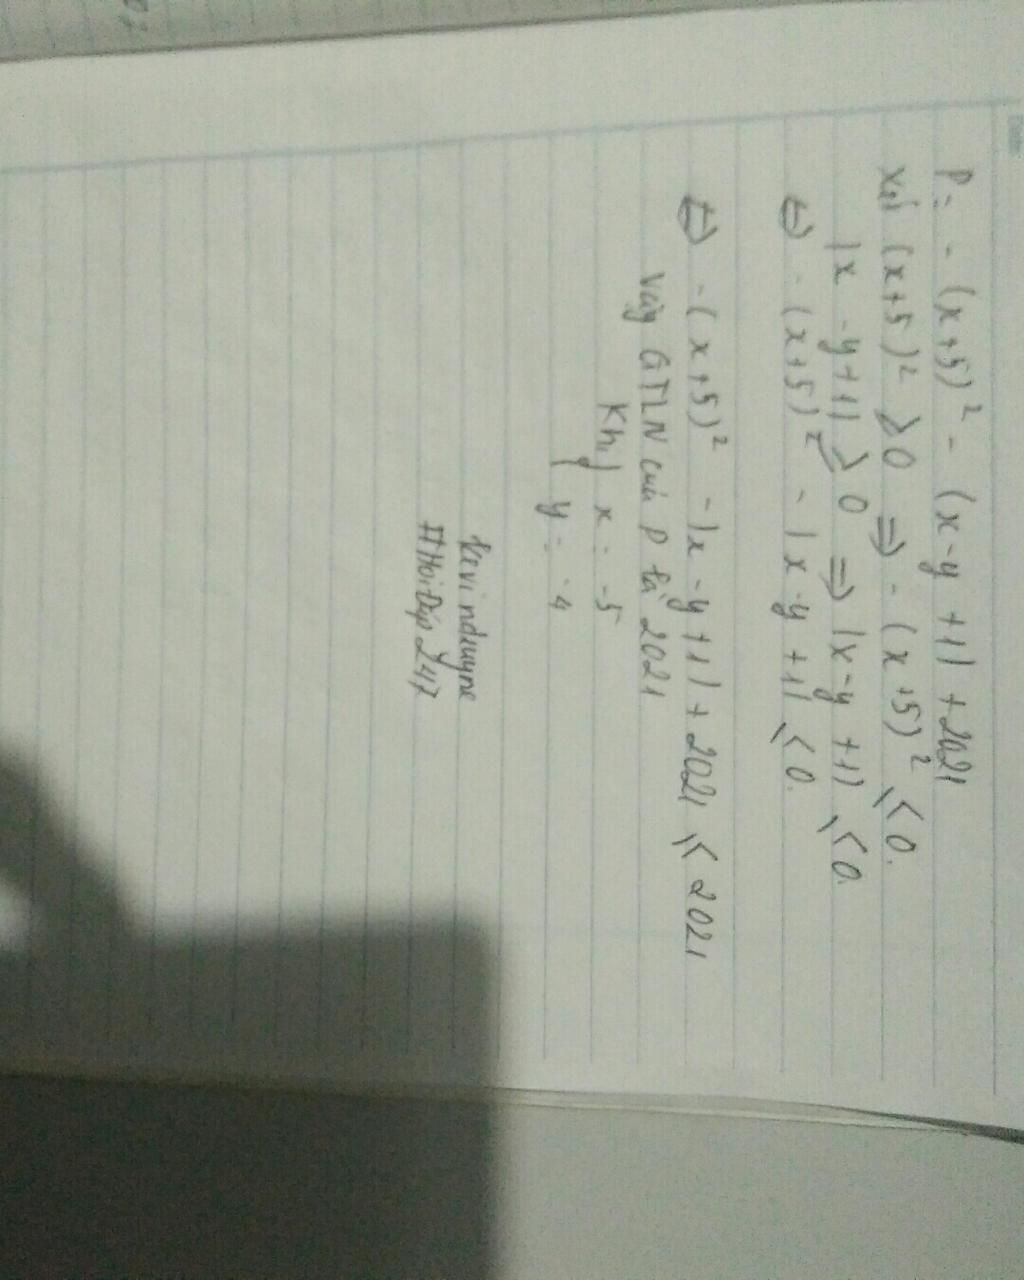 P = - (x+5)² - |x-y +1| + 2021
xét (x+5)² ⩾ 0 ⇒ - (x+5)² ⩽ 0.
|x -y+1| ⩾ 0 ⇒ |x-y +1| ⩽ 0.
⇔ - (x+5)² - |x-y +1| ⩽ 0.
⇔ - (x+5)² - |x-y+1| + 2021 ⩽ 2021
Vậy GTLN của P là 2021
Khi { x = -5
y = -4
#HoiDap247